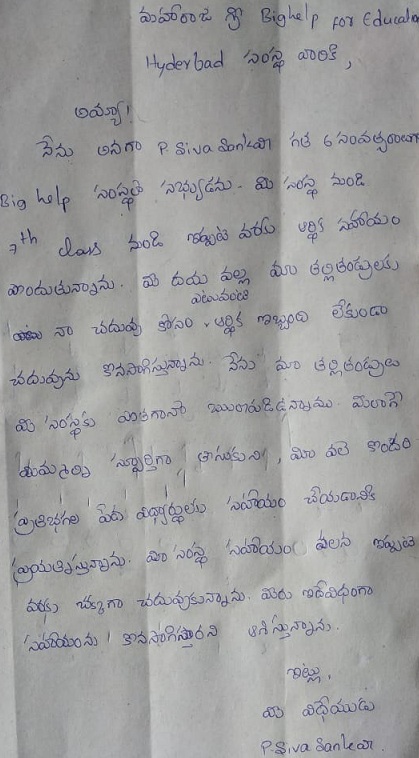 మహారాజ శ్రీ Bighelp for Educatio
Hyderbad సంస్థ వారికి,
అయ్యా!
నేను అనగా P. Siva Sankar గత 6 సంవత్సరాలుగా
Big help సంస్థలో సభ్యుడను. మీ సంస్థ నుండి
7th class నుండి ఇప్పటి వరకు ఆర్థిక సహాయం
పొందుతున్నాను. మీ దయ వల్ల మా తల్లితండ్రులకు
నా చదువు కోసం ఎటువంటి ఆర్థిక ఇబ్బంది లేకుండా
చదువును కొనసాగిస్తున్నాను. నేను మా తల్లితండ్రులు
మీ సంస్థకు ఎంతగానో ఋణపడిఉన్నాము. మీలాగే
మిమ్మల్ని స్ఫూర్తిగా తీసుకుని, మీ వలె కొందరి
ప్రతిభగల పేద విద్యార్థులకు సహాయం చేయడానికి
ప్రయత్నిస్తున్నాను. మీ సంస్థ సహాయం వలన ఇప్పటి
వరకు చక్కగా చదువుకున్నాను. మీరు ఇదేవిధంగా
సహాయంను కొనసాగిస్తారని ఆశిస్తున్నాను.
ఇట్లు,
మీ విధేయుడు
P. Siva Sankar.